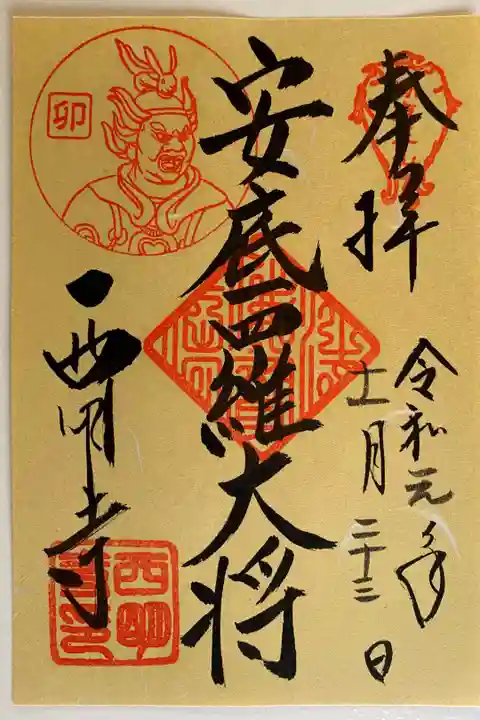 奉拝
令和元年
十一月二十三日
安底羅大将
卯
西明寺
西明寺印